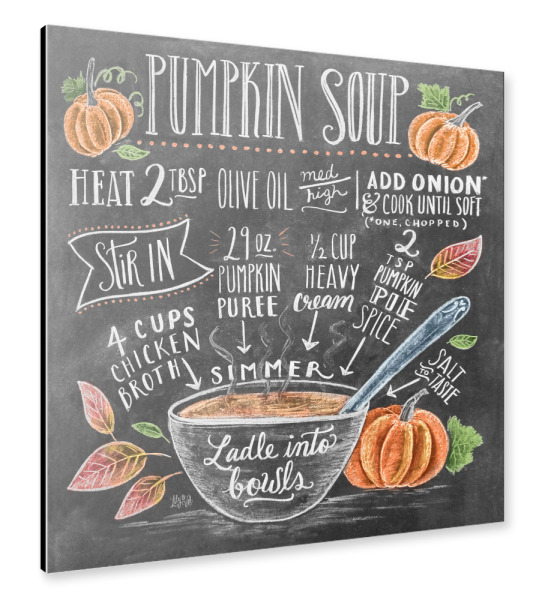 PUMPKIN SOUP
HEAT 2 TBSP OLIVE OIL med high
ADD ONION*
& COOK UNTIL SOFT
(*ONE, CHOPPED)
STIR IN
29 oz.
PUMPKIN
PUREE
½ CUP
HEAVY
cream
2
TSP
PUMPKIN
PIE
SPICE
4 CUPS
CHICKEN
BROTH
SALT
TO
TASTE
SIMMER
Ladle into
bowls